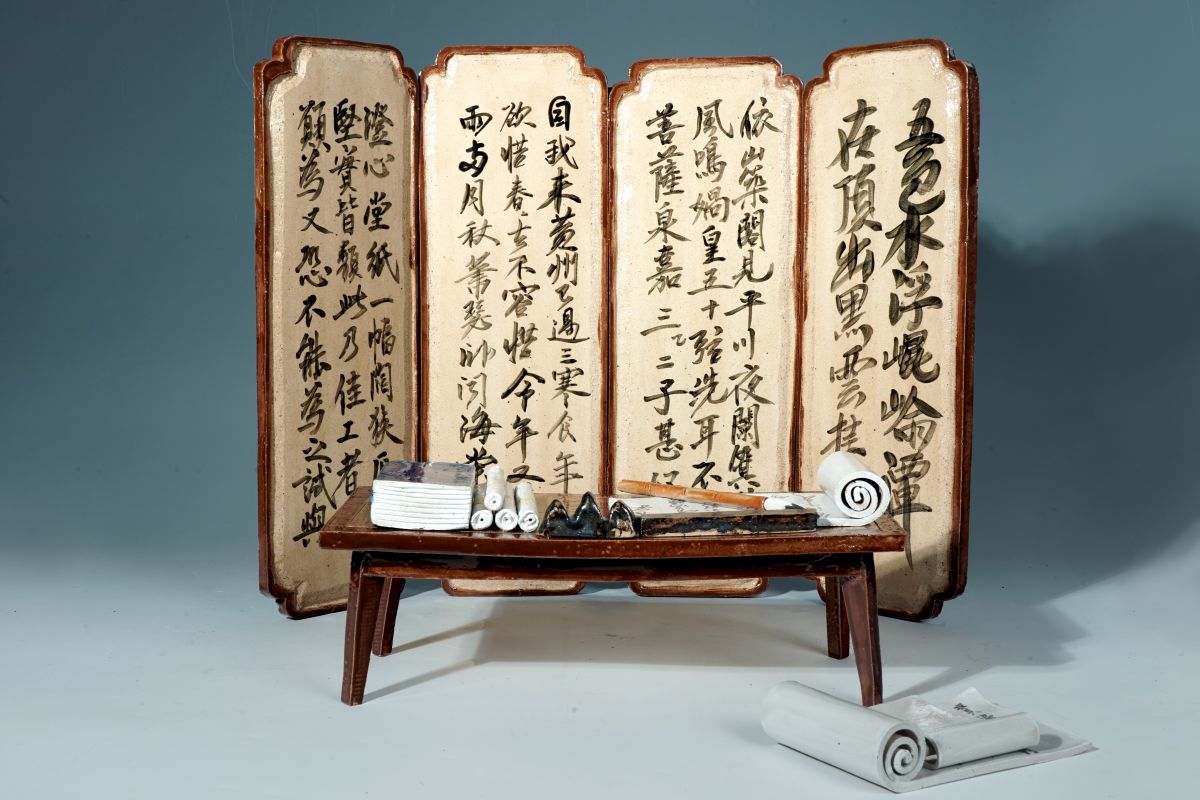 五色水浮崐崘潭
在頂出黑雲挂
依山築閣見平川夜闌箕
風鳴媧皇五十弦洗耳不
菩薩泉嘉三二子甚
自我来黄州已過三寒食年
欲惜春去不容惜今年又
雨兩月秋蕭瑟卧聞海棠
澄心堂紙一幅闊狹厚
堅實皆類此乃佳工者
願為又恐不能為之試與